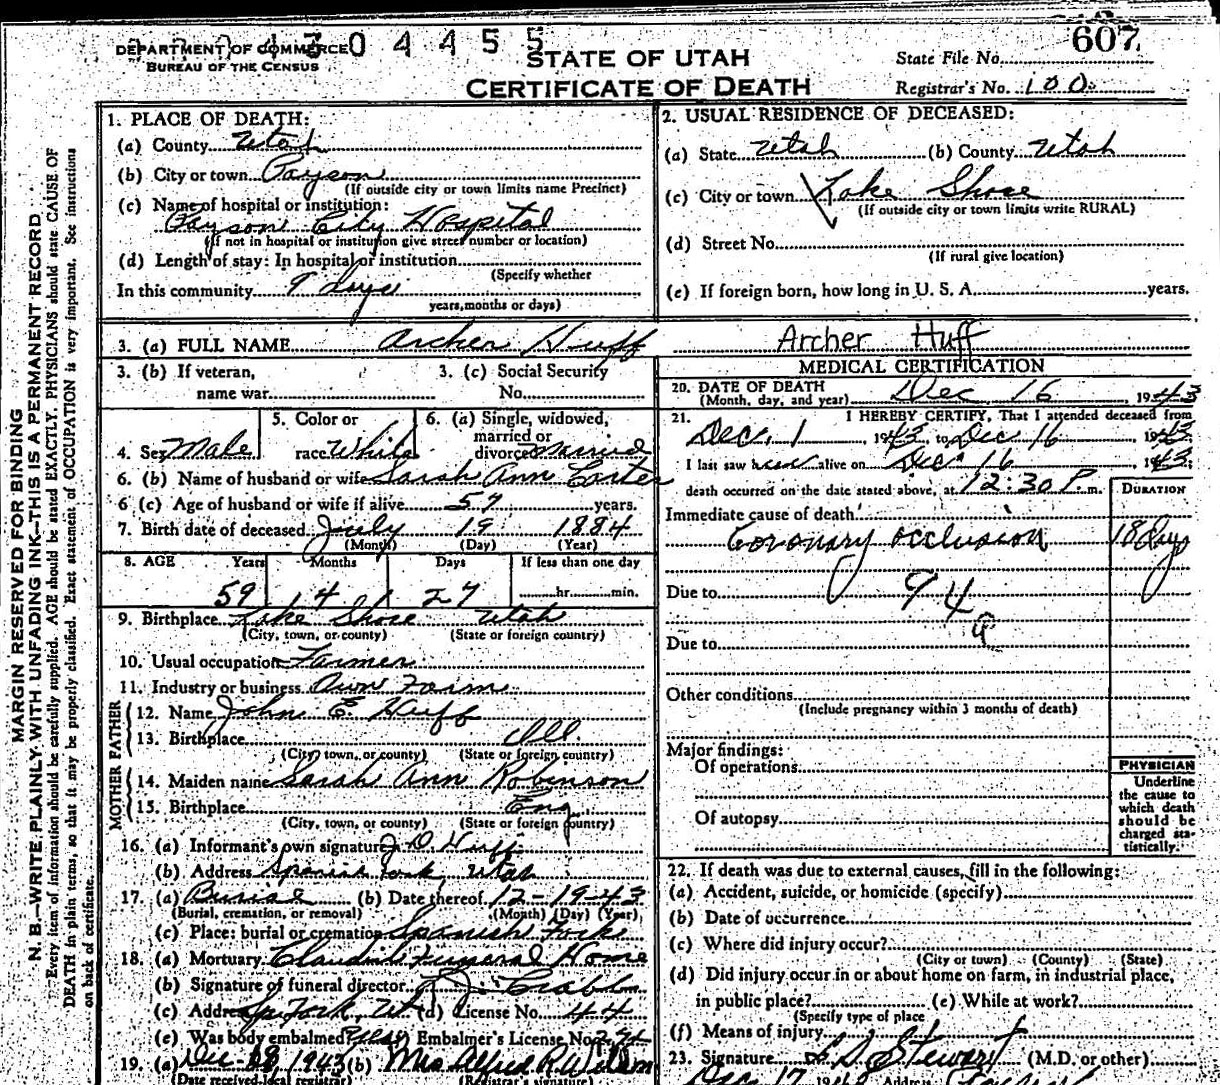 DEPARTMENT OF COMMERCE
BUREAU OF THE CENSUS
0 4 4 5 5
STATE OF UTAH
CERTIFICATE OF DEATH
State File No. 607
Registrar's No. 100
MARGIN RESERVED FOR BINDING
N. B.—WRITE PLAINLY WITH UNFADING INK—THIS IS A PERMANENT RECORD
Every item of information should be carefully supplied. AGE should be stated EXACTLY. PHYSICIANS should state CAUSE OF
DEATH in plain terms, so that it may be properly classified. Exact statement of OCCUPATION is very important. See instructions
on back of certificate.
1. PLACE OF DEATH:
(a) County Utah
(b) City or town Payson
(If outside city or town limits name Precinct)
(c) Name of hospital or institution:
Payson City Hospital
(If not in hospital or institution give street number or location)
(d) Length of stay: In hospital or institution
(Specify whether
In this community 9 days
years, months or days)
2. USUAL RESIDENCE OF DECEASED:
(a) State Utah (b) County Utah
(c) City or town Lake Shore
(If outside city or town limits write RURAL)
(d) Street No.
(If rural give location)
(e) If foreign born, how long in U. S. A. years.
3. (a) FULL NAME Archer Huff Archer Huff
3. (b) If veteran, 3. (c) Social Security
name war No.
4. Sex Male
5. Color or
race White
6. (a) Single, widowed,
married or
divorced Married
6. (b) Name of husband or wife Sarah Ann Carter
6 (c) Age of husband or wife if alive 57 years.
7. Birth date of deceased July 19 1884
(Month) (Day) (Year)
8. AGE Years Months Days If less than one day
59 4 27 hr. min.
9. Birthplace Lake Shore Utah
(City, town, or county) (State or foreign country)
10. Usual occupation Farmer
11. Industry or business Own Farm
FATHER
12. Name John E. Huff
13. Birthplace Ill.
(City, town, or county) (State or foreign country)
MOTHER
14. Maiden name Sarah Ann Robinson
15. Birthplace Eng
(City, town, or county) (State or foreign country)
16. (a) Informant's own signature J. O. Huff
(b) Address Spanish Fork, Utah
17. (a) Burial (b) Date thereof 12-19-43
(Burial, cremation, or removal) (Month) (Day) (Year)
(c) Place: burial or cremation Spanish Fork
18. (a) Mortuary Claudin Funeral Home
(b) Signature of funeral director
(c) Address Sp. Fork, Ut. (d) License No. 44
(e) Was body embalmed? Embalmer's License No.
19. (a) Dec 1943 (b) Mrs Alfred R.
(Date received local registrar) (Registrar's signature)
MEDICAL CERTIFICATION
20. DATE OF DEATH
(Month, day, and year) Dec 16, 1943
21. I HEREBY CERTIFY, That I attended deceased from
Dec. 1, 1943, to Dec 16 1943
I last saw him alive on Dec 16, 1943;
death occurred on the date stated above, at 12:30 P.m.
DURATION
Immediate cause of death
Coronary occlusion 18 days
Due to 94a
Due to
Other conditions
(Include pregnancy within 3 months of death)
Major findings:
Of operations
Of autopsy
PHYSICIAN
Underline
the cause to
which death
should be
charged sta-
tistically.
22. If death was due to external causes, fill in the following:
(a) Accident, suicide, or homicide (specify)
(b) Date of occurrence
(c) Where did injury occur?
(City or town) (County) (State)
(d) Did injury occur in or about home on farm, in industrial place,
in public place? (e) While at work?
(Specify type of place
(f) Means of injury
23. Signature L D Stewart (M.D. or other)
Dec 17 194 Address Payson